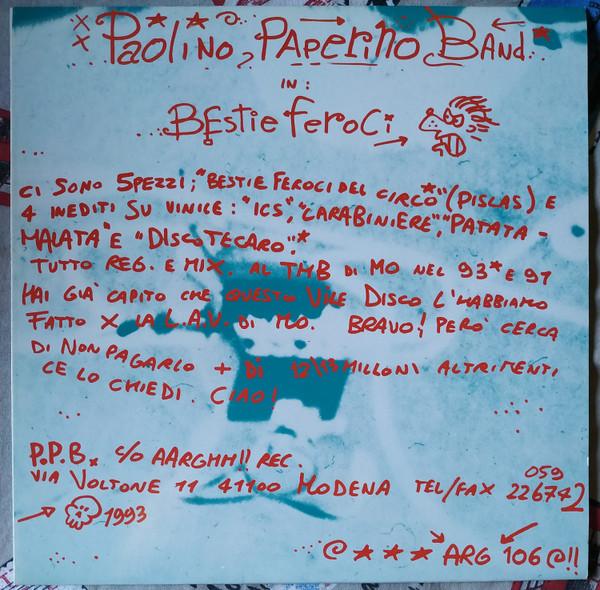 Paolino Paperino Band
IN :
...BEstie feroci
CI SONO 5 PEZZI; "BESTIE FEROCI DEL CIRCO*" (PISLAS) E
4 INEDITI SU VINILE: "ICS", "CARABINIERE", "PATATA -
MALATA" E "DISCOTECARO"*
TUTTO REG. E MIX. AL TMB DI MO NEL 93* E 91
HAI GIÀ CAPITO CHE QUESTO VILE DISCO L'HABBIAMO
FATTO X LA L.A.V. DI MO. BRAVO! PERÒ CERCA
DI NON PAGARLO + DI 12/13 MILLONI ALTRIMENTI
CE LO CHIEDI. CIAO!
P.P.B. c/o AARGHH!! REC.
VIA VOLTONE 11 41100 MODENA TEL/FAX 059 226742
1993
@ * * * ARG 106 @!!